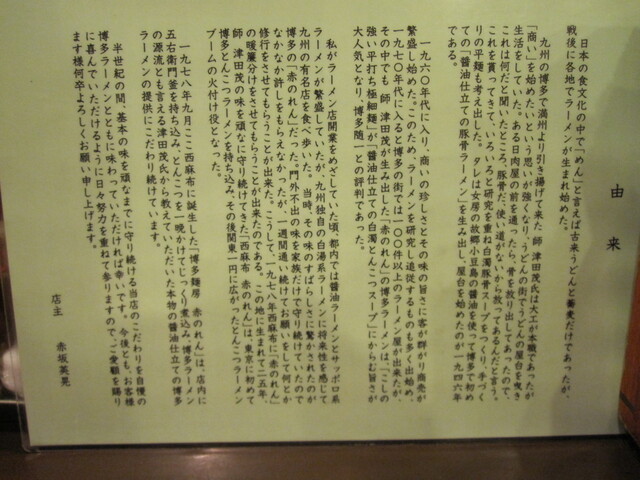 由来
日本の食文化の中で「めん」と言えば古来うどんと蕎麦だけであったが、
戦後に各地でラーメンが生まれ始めた。
九州の博多で満州より引き揚げて来た 師 津田茂氏は大工が本職であったが
「商い」を始めたいという思いが強くなり、うどんの街でうどんの屋台を曳き
生活をしていた。ある日肉屋の前を通ったら、骨を放り出してあったので、
これは何だと聞いたところ、豚骨だ、使い道がないから放ってあるんだと言う。
これを貰ってきて、いろいろと研究を重ね白濁豚骨スープをつくり、手づく
りの平麺も考え出した。タレは女房の故郷小豆島の醤油を使って博多で初め
ての「醤油仕立ての豚骨ラーメン」を生み出し、屋台を始めたのが一九四六年
である。
一九六〇年代に入り、商いの珍しさとその味の旨さに客が群がり商売が
繁盛し始めた。このため、ラーメンを研究し追従するものも多く出始め、
一九七〇年代に入ると博多の街では一〇〇件以上のラーメン屋が出来たが、
その中でも 師 津田茂が生み出した「赤のれん」の博多ラーメンは、「こしの
強い平打ち極細麺」が「醤油仕立ての白濁とんこつスープ」にからむ旨さが
大人気となり、博多随一との評判であった。
私がラーメン店開業をめざしていた頃、都内では醤油ラーメンとサッポロ系
ラーメンが繁盛していたが、九州独自の白湯系ラーメンに将来性を感じて
九州の有名店を食べ歩いた。当時、その味のすばらしさに驚かされたのが
博多の「赤のれん」だった。門外不出の味を家族だけで守り続けていたので
なかなか許しをもらえなかったが、一週間通い続けてお願いをして何とか
修行をさせてもらうことが出来た。こうして、一九七八年西麻布に「赤のれん」
の暖簾分けをさせてもらうことが出来たのである。この地に生まれて二五年、
師 津田茂の味を頑なに守り続けてきた「西麻布 赤のれん」は、東京に初めて
博多とんこつラーメンを持ち込み、その後関東一円に広がったとんこつラーメン
ブームの火付け役となった。
一九七八年九月ここ西麻布に誕生した「博多麺房 赤のれん」は、店内に
五右衛門釜を持ち込み、とんこつを一晩かけてじっくり煮込み、博多ラーメン
の源流とも言える津田茂氏から教えていただいた本物の醤油仕立ての博多
ラーメンの提供にこだわり続けています。
半世紀の間、基本の味を頑なまでに守り続ける当店のこだわりを自慢の
博多ラーメンとともに味わっていただければ幸いです。今後とも、お客様
に喜んでいただけるように日々努力を重ねて参りますので、ご愛顧を賜り
ます様何卒よろしくお願い申し上げます。
店主 赤坂英晃